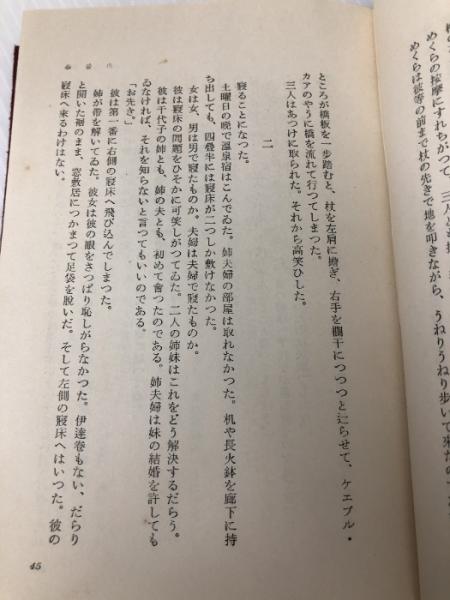 めくらの按摩にすれちがつて、三人と
めくらは彼等の前まで杖の先きで地を叩きながら、うねりうねり歩いて来たの
ところが橋板を一歩踏むと、杖を左肩に擔ぎ、右手を欄干につつつと辷らせて、ケエブル・
カアのやうに橋を流れて行つてしまつた。
三人はあつけに取られた。それから高笑ひした。
二
寢ることになつた。
土曜日の晩で温泉宿はこんでゐた。姉夫婦の部屋は取れなかつた。机や長火鉢を廊下に持
ち出しても、四疊半には寢床が二つしか敷けなかつた。
女は女、男は男で寢たものか。夫婦は夫婦で寢たものか。
彼は寢床の問題をひそかに可笑しがつてゐた。二人の姉妹はこれをどう解決するだらう。
彼は千代子の姉とも、姉の夫とも、初めて會つたのである。姉夫婦は妹の結婚を許しても
ゐなければ、それを知らないと言つてもいいのである。
「お先き。」
彼は第一番に右側の寢床へ飛び込んでしまつた。
姉が帶を解いてゐた。彼女は彼の眼をさつぱり恥しがらなかつた。伊達卷もない、だらり
と開いた裾のまま、窓敷居につかまつて足袋を脱いだ。そして左側の寢床へはいつた。彼の
寢床へ來るわけはない。
45